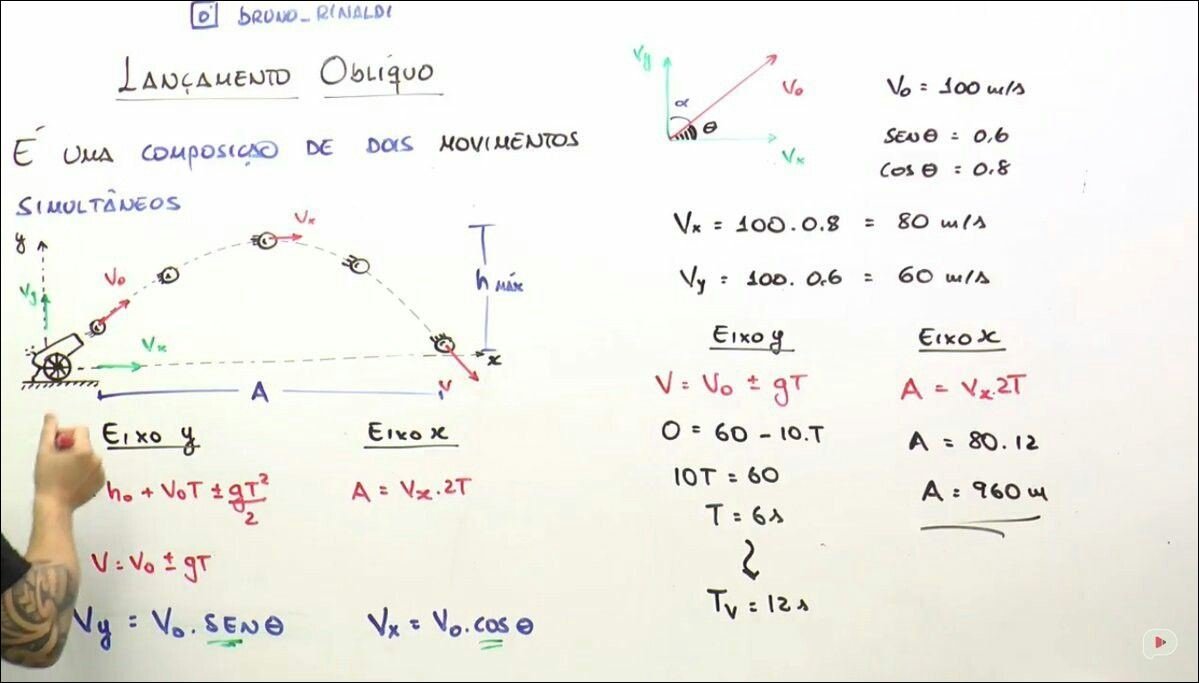 BRUNO_RINALDI
LANÇAMENTO OBLÍQUO
É UMA COMPOSIÇÃO DE DOIS MOVIMENTOS
SIMULTÂNEOS
y
Vy
V₀
Vx
Vx
h MÁX
x
V
A
EIXO y
EIXO x
h₀ + V₀T ± gT²/2
A = Vx.2T
V = V₀ ± gT
Vy = V₀. SEN θ
Vx = V₀.COS θ
Vy
V₀
α
θ
Vx
V₀ = 100 m/s
SEN θ = 0,6
COS θ = 0.8
Vx = 100.0.8 = 80 m/s
Vy = 100. 0,6 = 60 m/s
EIXO y
V = V₀ ± gT
0 = 60 - 10.T
10T = 60
T = 6s
Tv = 12s
EIXO x
A = Vx.2T
A = 80.12
A = 960m